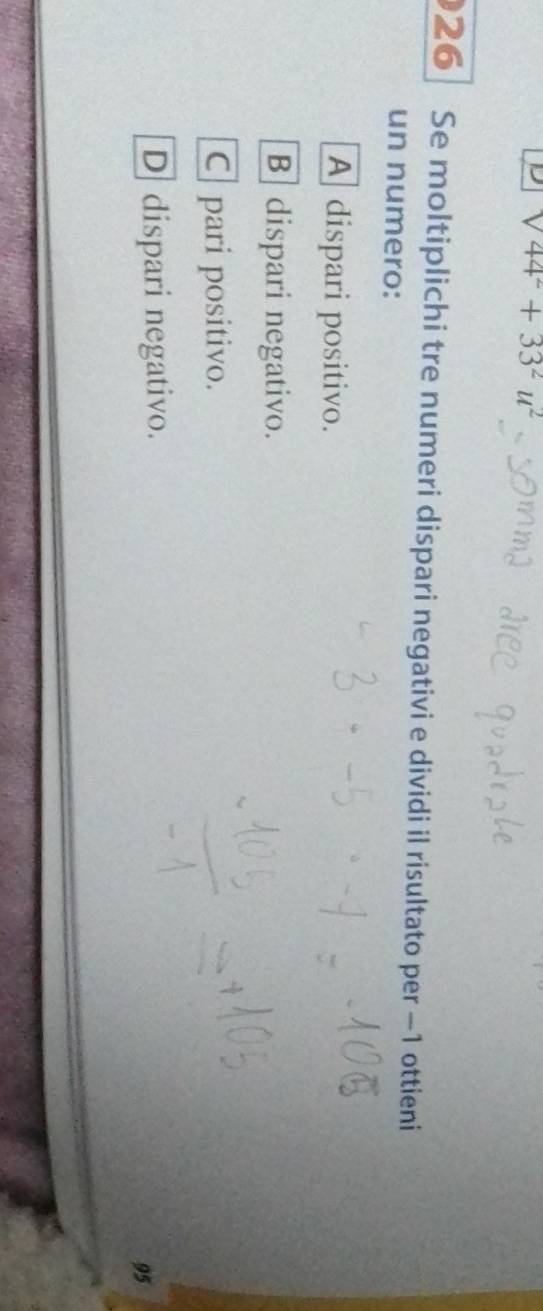 D √44² + 33² u² - somma aree quadrate
026 Se moltiplichi tre numeri dispari negativi e dividi il risultato per –1 ottieni
un numero:
A dispari positivo.
B dispari negativo.
C pari positivo.
D dispari negativo.
- 3 · -5 · -7 = -105
-105
-1
= +105
95